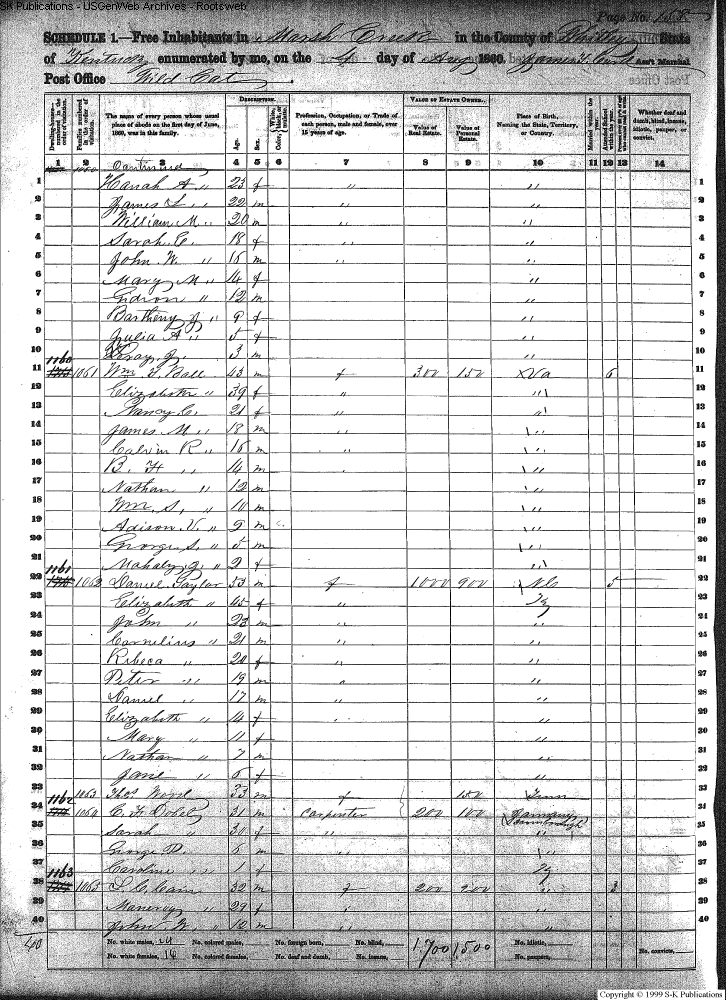 S-K Publications - USGenWeb Archives - Rootsweb
Page No. 158
SCHEDULE 1.—Free Inhabitants in Marsh Creek in the County of Whitley State
of Kentucky enumerated by me, on the 4 day of Aug 1860. Ass't Marshal
Post Office Wild Cat.
Dwelling-houses— numbered in the order of visitation.
Families numbered in the order of visitation.
The name of every person whose usual place of abode on the first day of June, 1860, was in this family.
DESCRIPTION.
Age. Sex. Color, White, black, or mulatto.
Profession, Occupation, or Trade of each person, male and female, over 15 years of age.
VALUE OF ESTATE OWNED.
Value of Real Estate. Value of Personal Estate.
Place of Birth, Naming the State, Territory, or Country.
Married within the year. Attended School within the year.
Whether deaf and dumb, blind, insane, idiotic, pauper, or convict.
1 2 3 4 5 6 7 8 9 10 11 12 13 14
1060 Continued
1 Hanah A " 23 f " "
2 James L " 22 m " "
3 William M " 20 m " "
4 Sarah E. 18 f " "
5 John W. " 16 m "
6 Mary M " 14 f "
7 Gidion " 12 m "
8 Bartheny J " 9 f "
9 Julia A " 5 f "
10 Leroy J. 3 m "
11 1160 1061 Wm T Ball 43 m f 300 150 Va 6
12 Elizabeth " 39 f " "
13 Nancy C. " 21 f " "
14 James M " 18 m " "
15 Calvin R " 16 m " "
16 B. F " 14 m "
17 Nathan " 12 m "
18 Wm. S. " 10 m "
19 Adison V. " 9 m "
20 George S. " 5 m "
21 Mahaly J. " 2 f "
22 1161 1062 Daniel Taylor 53 m f 1000 900 NC 5
23 Elizabeth " 45 f " Ky
24 John " 23 m " "
25 Cornelius " 21 m " "
26 Ribeca " 20 f " "
27 Peter " 19 m " "
28 Daniel " 17 m " "
29 Elizabeth " 14 f "
30 Mary " 11 f "
31 Nathan " 7 m "
32 Jane " 6 f "
33 1063 33 m f 150 Tenn
34 1162 1064 31 m Carpenter 200 100 Germany
35 Sarah " 30 f " "
36 George D. 6 m "
37 Caroline " 1 f Ky
38 1163 1065 L. C. Cain 32 m f 200 200 " 3
39 " 29 f "
40 John W " 12 m "
40 No. white males, 24 No. colored males, No. foreign born, No. blind, 1,700 1,500 No. idiotic,
No. white females, 16 No. colored females, No. deaf and dumb, No. insane, No. paupers, No. convicts,
Copyright © 1999 S-K Publications